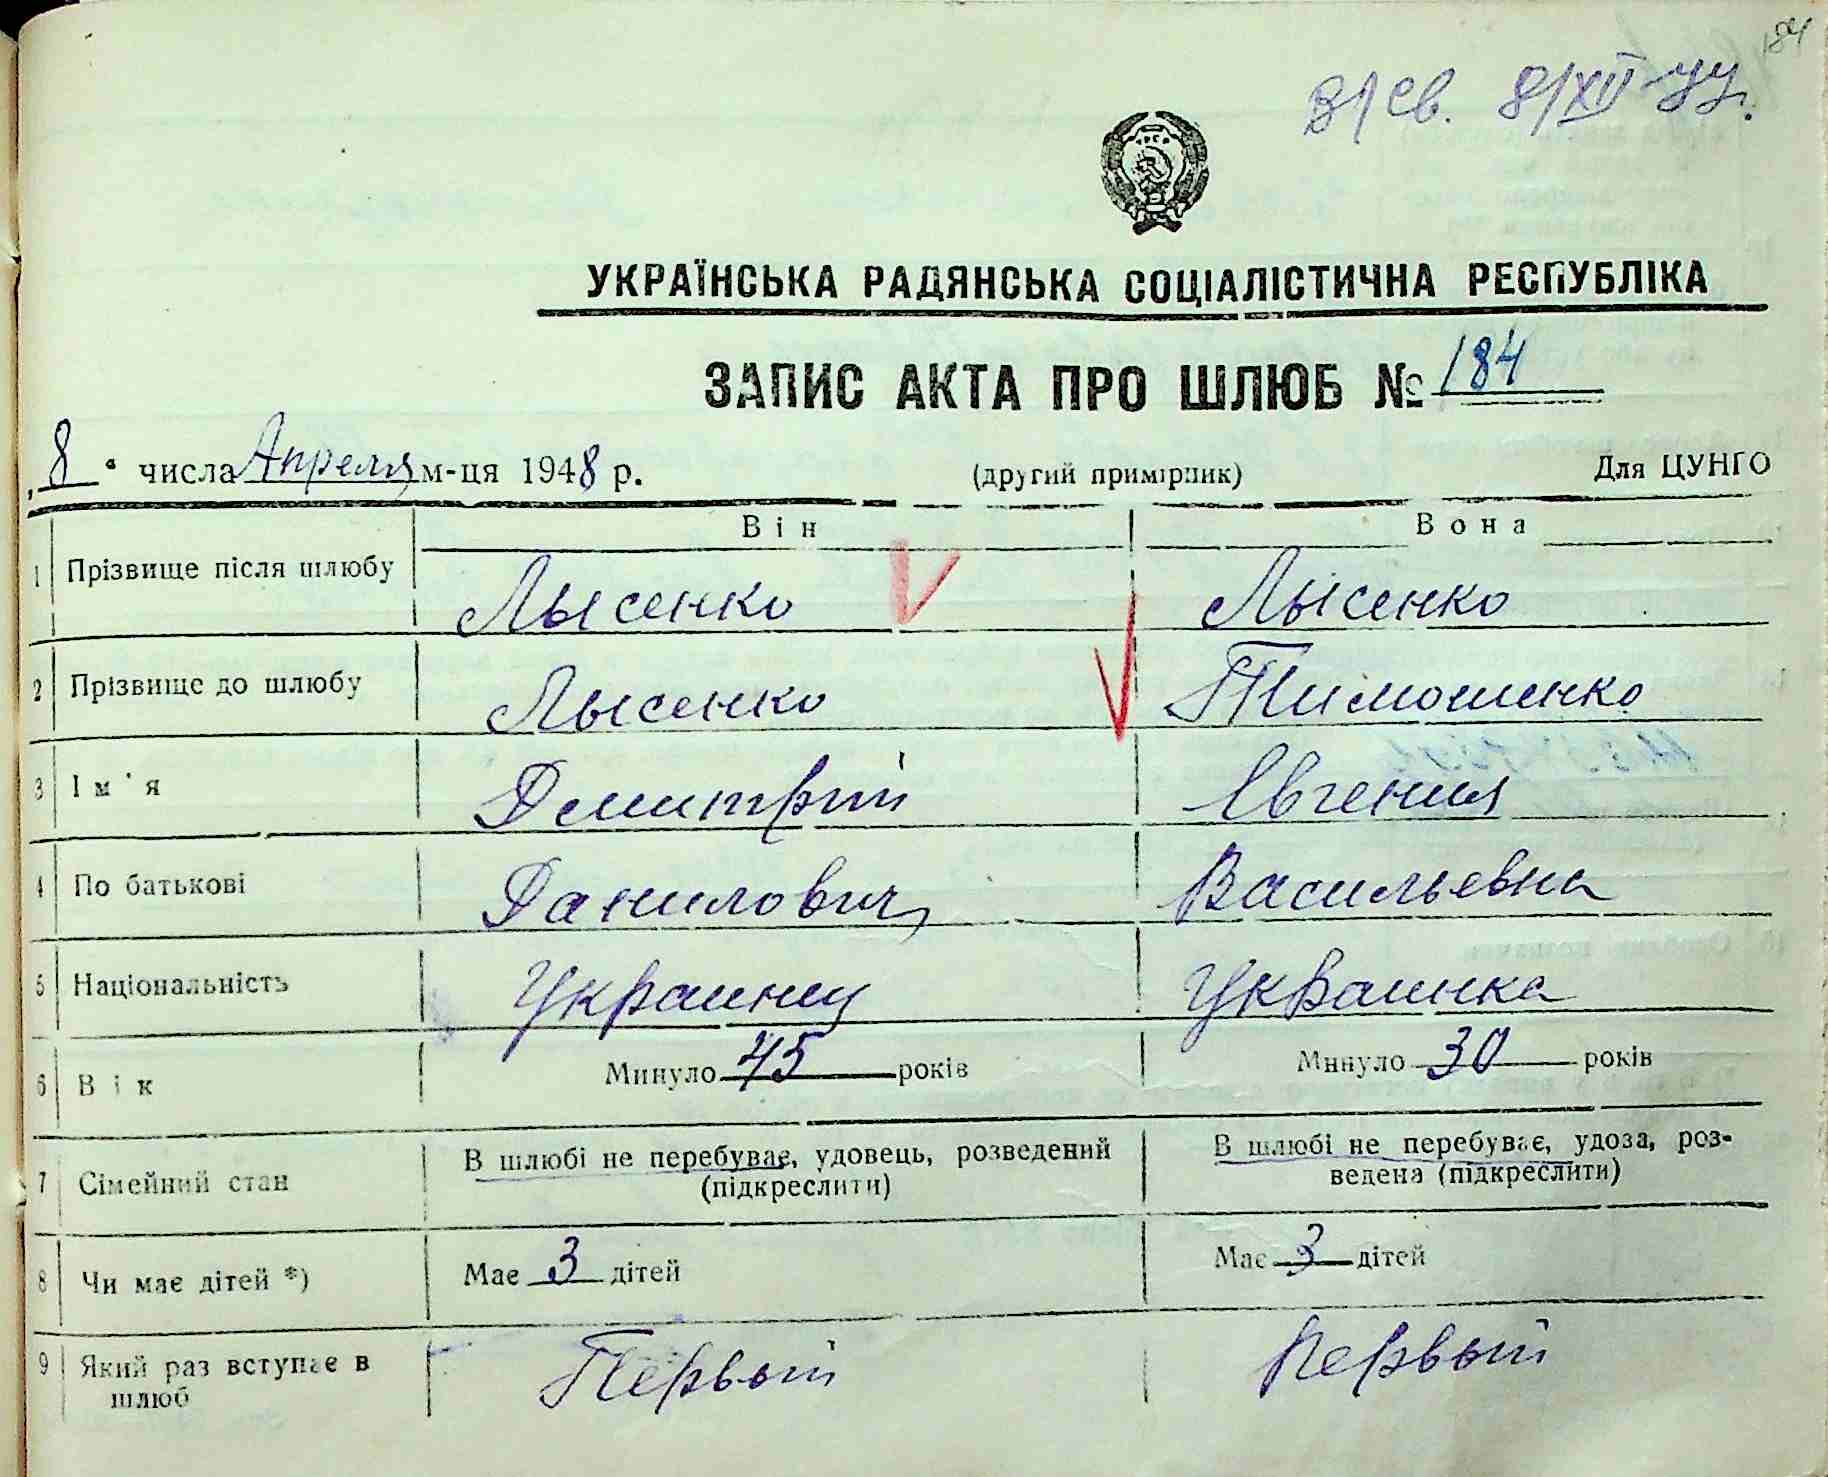 184
В/св. 8/XII-44г.
УКРАЇНСЬКА РАДЯНСЬКА СОЦІАЛІСТИЧНА РЕСПУБЛІКА
ЗАПИС АКТА ПРО ШЛЮБ № 184
„8“ числа Апреля м-ця 1948 р. (другий примірник) Для ЦУНГО
Він Вона
1 Прізвище після шлюбу Лысенко Лысенко
2 Прізвище до шлюбу Лысенко Тимошенко
3 Ім'я Дмитрий Евгения
4 По батькові Данилович Васильевна
5 Національність Украинец Украинка
6 Вік Минуло 45 років Минуло 30 років
7 Сімейний стан В шлюбі не перебуває, удовець, розведений (підкреслити) В шлюбі не перебуває, удова, роз-
ведена (підкреслити)
8 Чи має дітей *) Має 3 дітей Має 3 дітей
9 Який раз вступає в шлюб Первый Первый